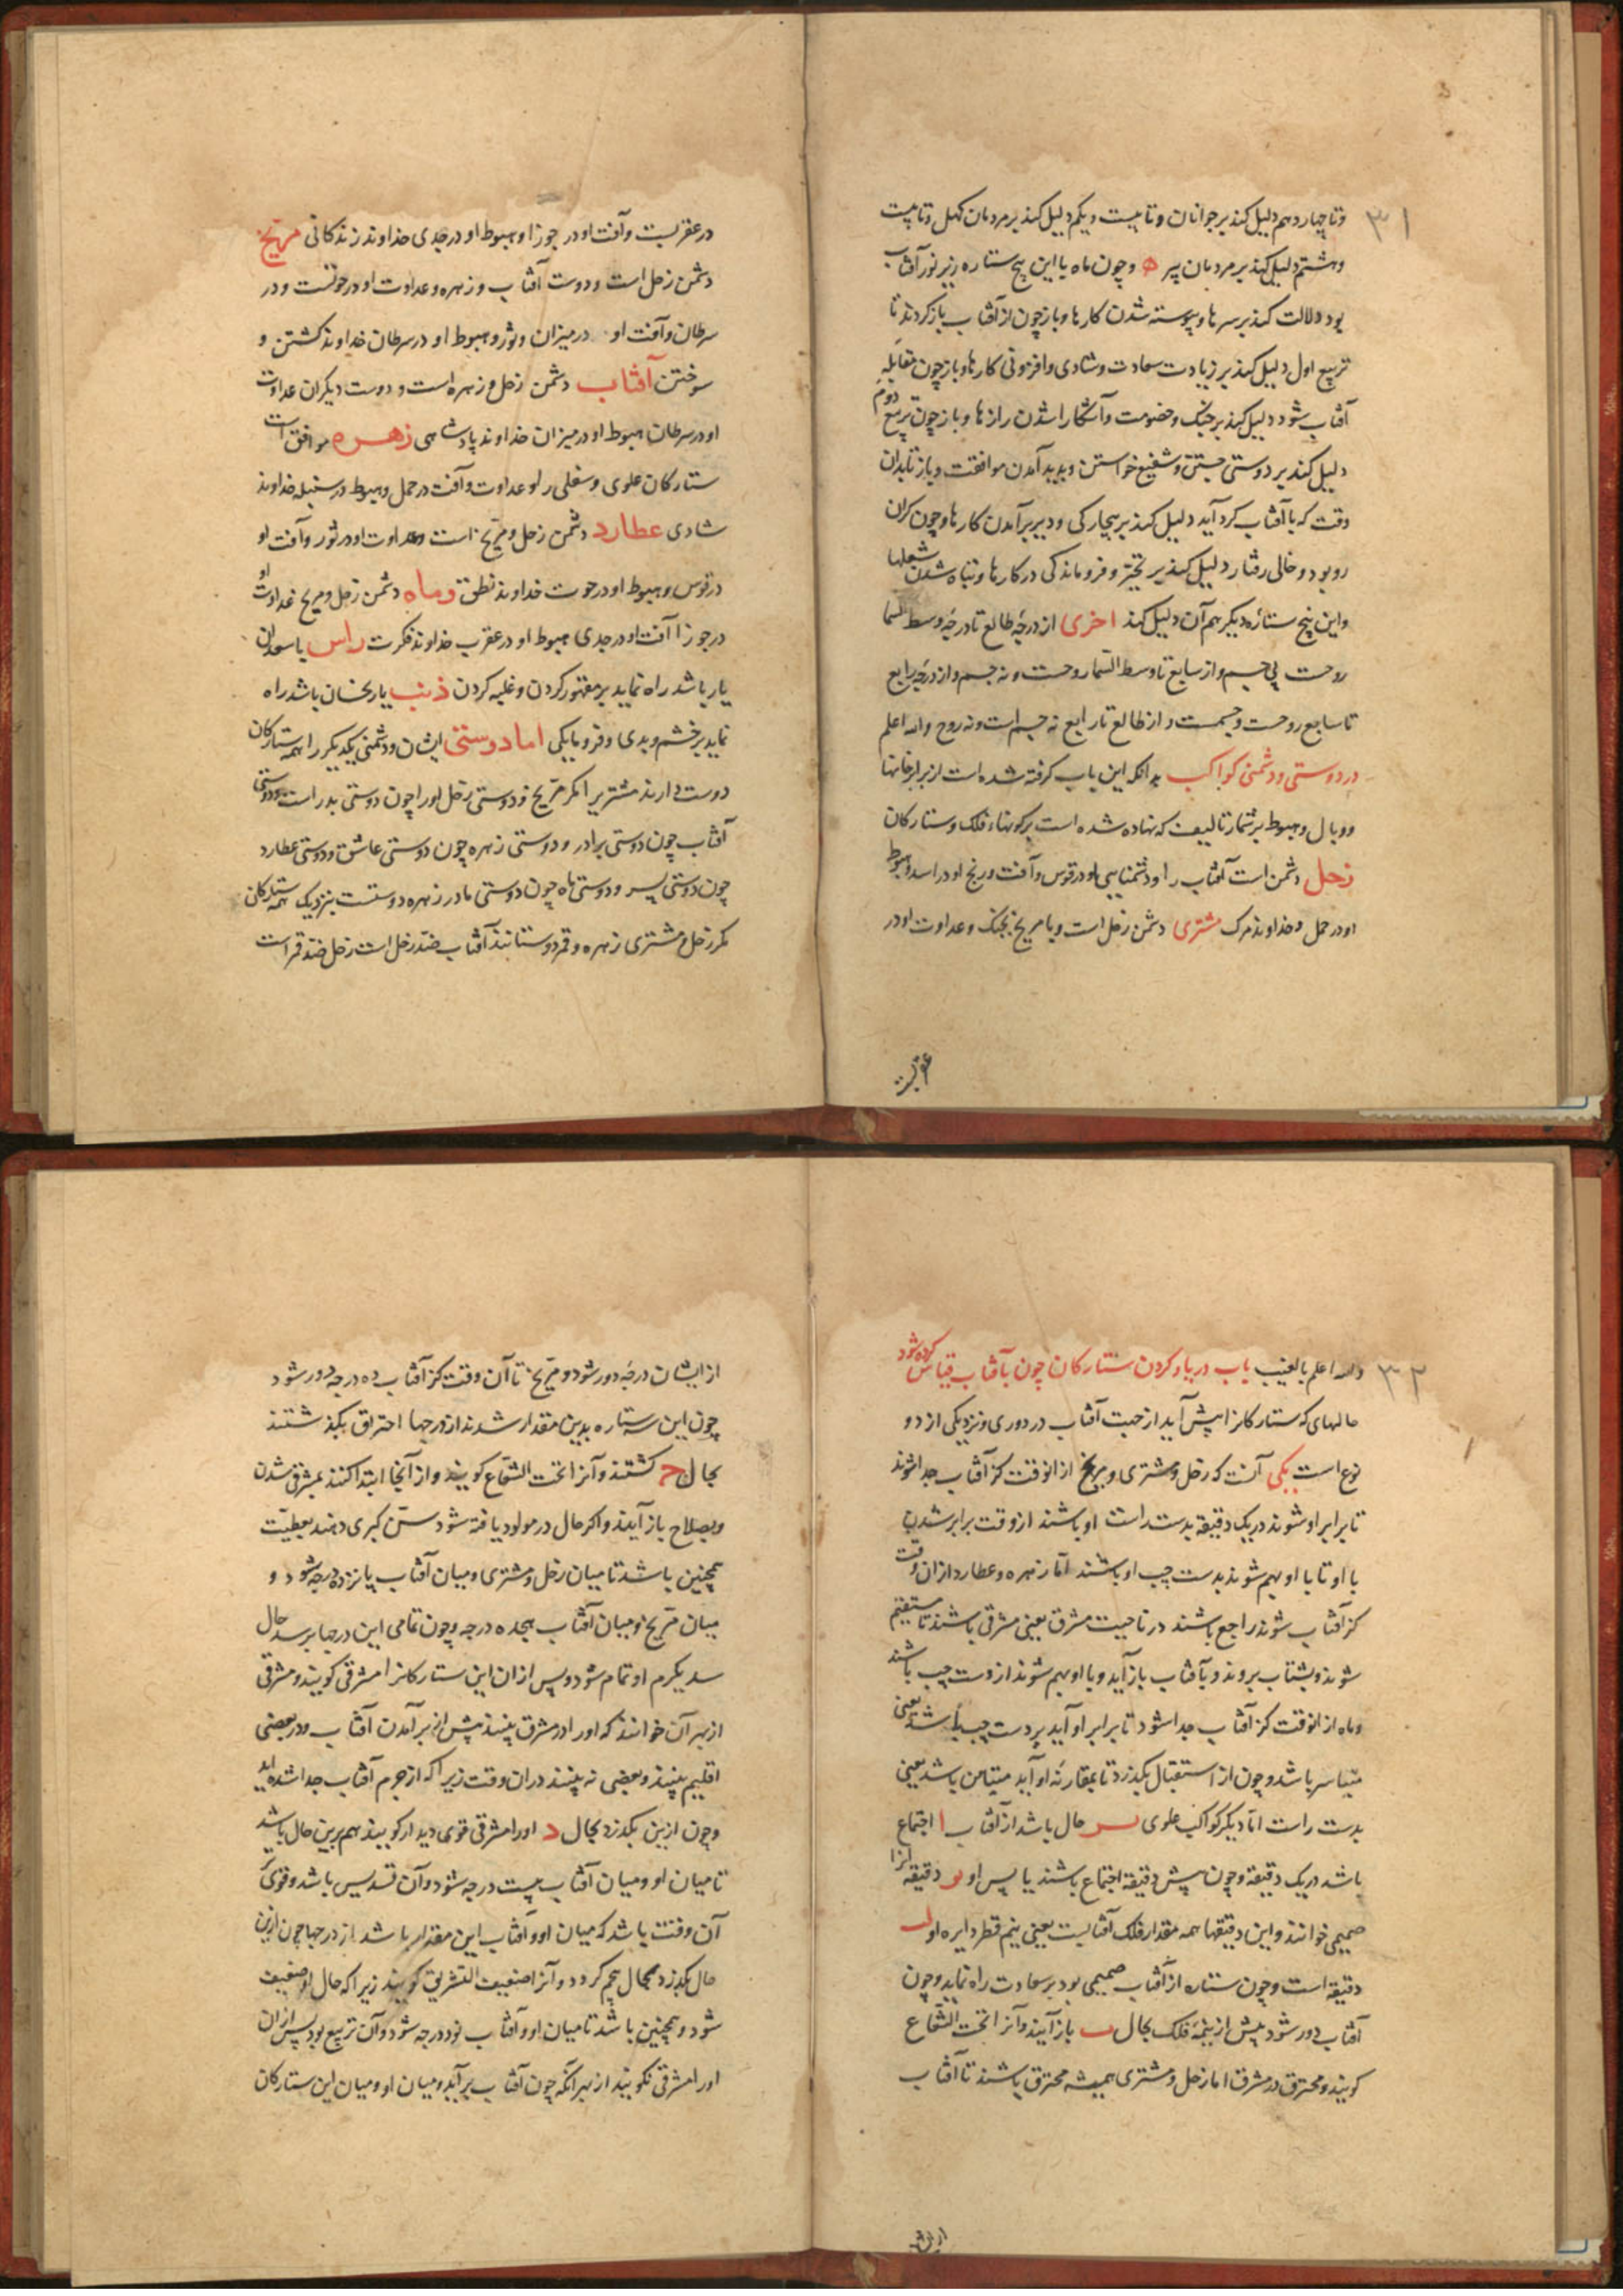 ۳۱
وتا چهاردهم دلیل کند بر جوانان وتا بیست ویکم دلیل کند بر مردمان کهل وتا بیست
وهشتم دلیل کند بر مردمان پیر ه وچون ماه یا این پنج ستاره زیر نور آفتاب
بود دلالت کند بر سرها وپیوسته شدن کارها وباز چون از آفتاب باز کردند تا
تربیع اول دلیل کند بر زیادت سعادت وشادی وافزونی کارها وباز چون مقابله
آفتاب شود دلیل کند بر جنک وخصومت وآشکارا شدن رازها وباز چون تربیع دوم
دلیل کند بر دوستی جستن وشفیع خواستن وپدید آمدن موافقت وباز تا بدان
وقت که با آفتاب کرد آید دلیل کند بر بیچارکی ودیر برآمدن کارها وچون کران
رو بود وخالی رفتار دلیل کند بر تحیّر وفروماندکی در کارها وتباه شدن شغلها
واین پنج ستارهٔ دیکر هم آن دلیل کند اخری از درجهٔ طالع تا درجهٔ وسط السما
روحست بی جسم واز سابع تا وسط السّما روحست ونه جسم واز درجهٔ رابع
تا سابع روحست وجسمست واز طالع تا رابع نه جسم است ونه روح والله اعلم
در دوستی ودشمنی کواکب بدانکه این باب کرفته شده است از برابر خانها
ووبال وهبوط بر شمار تالیف که نهاده شده است بر کونهاء فلک وستارکان
زحل دشمن است آفتاب را ودشمنایی او در قوس وآفت ورنج او در اسد وهبوط
او در حمل وخداوند مرک مشتری دشمن زحل است وبا مریخ بجنک وعداوت او در
عقربست
در عقربست وآفت او در جوزا وهبوط او در جدی خداوند زندکانی مریخ
دشمن زحل است ودوست آفتاب وزهره وعداوت او در حوتست ودر
سرطان وآفت او در میزان وثور وهبوط او در سرطان خداوند کشتن و
سوختن آفتاب دشمن زحل وزهره است ودوست دیکران عداوت
او در سرطان هبوط او در میزان خداوند پادشاهی زهره موافق است
ستارکان علوی وسفلی را وعداوت وآفت در حمل وهبوط در سنبله خداوند
شادی عطارد دشمن زحل ومریخ است وعداوت او در ثور وآفت او
در قوس وهبوط او در حوت خداوند نطق وماه دشمن زحل ومریخ عداوت او
در جوزا آفت او در جدی هبوط او در عقرب خداوند فکرت راس با سعدان
یار باشد راه نماید بر مقهور کردن وغلبه کردن ذنب یار نحسان باشد راه
نماید بر خشم وبدی وفرومایکی اما دوستی ایشان ودشمنی یکدیکر را همه ستارکان
دوست دارند مشتریرا مکر مریخ ودوستی زحل اورا چون دوستی پدر است ودوستی
آفتاب چون دوستی برادر ودوستی زهره چون دوستی عاشق ودوستی عطارد
چون دوستی پسر ودوستی ماه چون دوستی مادر زهره دوستست بنزدیک همه ستارکان
مکر زحل ومشتری زهره وقمر دوستانند آفتاب ضد زحل است زحل ضد قمر است
۳۲
والله اعلم بالغیب باب در یاد کردن ستارکان چون بآفتاب قیاس کرده شود
حالهای که ستارکانرا پیش آید از جهت آفتاب در دوری ونزدیکی از دو
نوع است یکی آنست که زحل ومشتری ومریخ از انوقت کز آفتاب جدا شوند
تا برابر او شوند در یک دقیقه بدست راست او باشند از وقت برابر شدن
با او تا با او بهم شوند بدست چپ او باشند امّا زهره وعطارد از ان وقت
کز آفتاب شوند راجع باشند در ناحیت مشرق یعنی مشرقی باشند تا مستقیم
شوند وبشتاب بروند وبآفتاب باز آید وبا او بهم شوند از دست چپ باشند
وماه از انوقت کز آفتاب جدا شود تا برابر او آید بر دست چپ باشد یعنی
متیاسر باشد وچون از استقبال بکذرد تا بمقارنهٔ او آید متیامن باشد یعنی
بدست راست امّا دیکر کواکب علوی حال باشد از آفتاب ا اجتماع
باشد در یک دقیقه وچون پیش دقیقهٔ اجتماع باشند یا پس او یو دقیقه انرا
صمیمی خوانند واین دقیقها همه مقدار فلک آفتابست یعنی نیم قطر دایره او لب
دقیقه است وچون ستاره از آفتاب صمیمی بود بر سعادت راه نماید وچون
آفتاب دور شود بیش از نیمهٔ فلک بحال ب باز آیند وآنرا تحت الشّعاع
کویند ومحترق در مشرق اما زحل ومشتری همیشه محترق باشند تا آفتاب
از ایشان
از ایشان درجه دور شود ومریخ تا آن وقت کز آفتاب ده درجه دور شود
چون این ستاره بدین مقدار شدند از درجها احتراق بکذشتند
بحال ج کشتند وآنرا تحت الشعاع کویند واز آنجا ابتدا کنند بمشرقی شدن
وبصلاح باز آیند واکر حال در مولود یافته شود سنّ کبری دهند بعطیّت
همچنین باشد تا میان زحل ومشتری ومیان آفتاب پانزده درجه شود و
میان مریخ ومیان آفتاب هیجده درجه وچون تمامی این درجها برسد حال
سدیکرم او تمام شود وپس از ان این ستارکانرا مشرقی کویند ومشرقی
از بهر آن خوانند که اورا در مشرق بینند پیش از برآمدن آفتاب ودر بعضی
اقلیم بینند وبعضی نه بینند دران وقت زیرا که از جرم آفتاب جدا شده اند
وچون ازین بکذرد بحال د اورا مشرقی قوی دیدار کویند هم برین حال باشد
تا میان او ومیان آفتاب بیست درجه شود وآن تسدیس باشد وقوی
آن وقتست باشد که میان او وآفتاب این مقدار باشد از درجها چون ازین
حال بکذرد بحال پنجم کردد وآنرا ضعیف التشریق کویند زیرا که حال او ضعیف
شود وهمچنین باشد تا میان او وآفتاب نود درجه شود وآن تربیع بود پس از ان
اورا مشرقی نکویند از بهر آنکه چون آفتاب برآید ومیان او ومیان این ستارکان